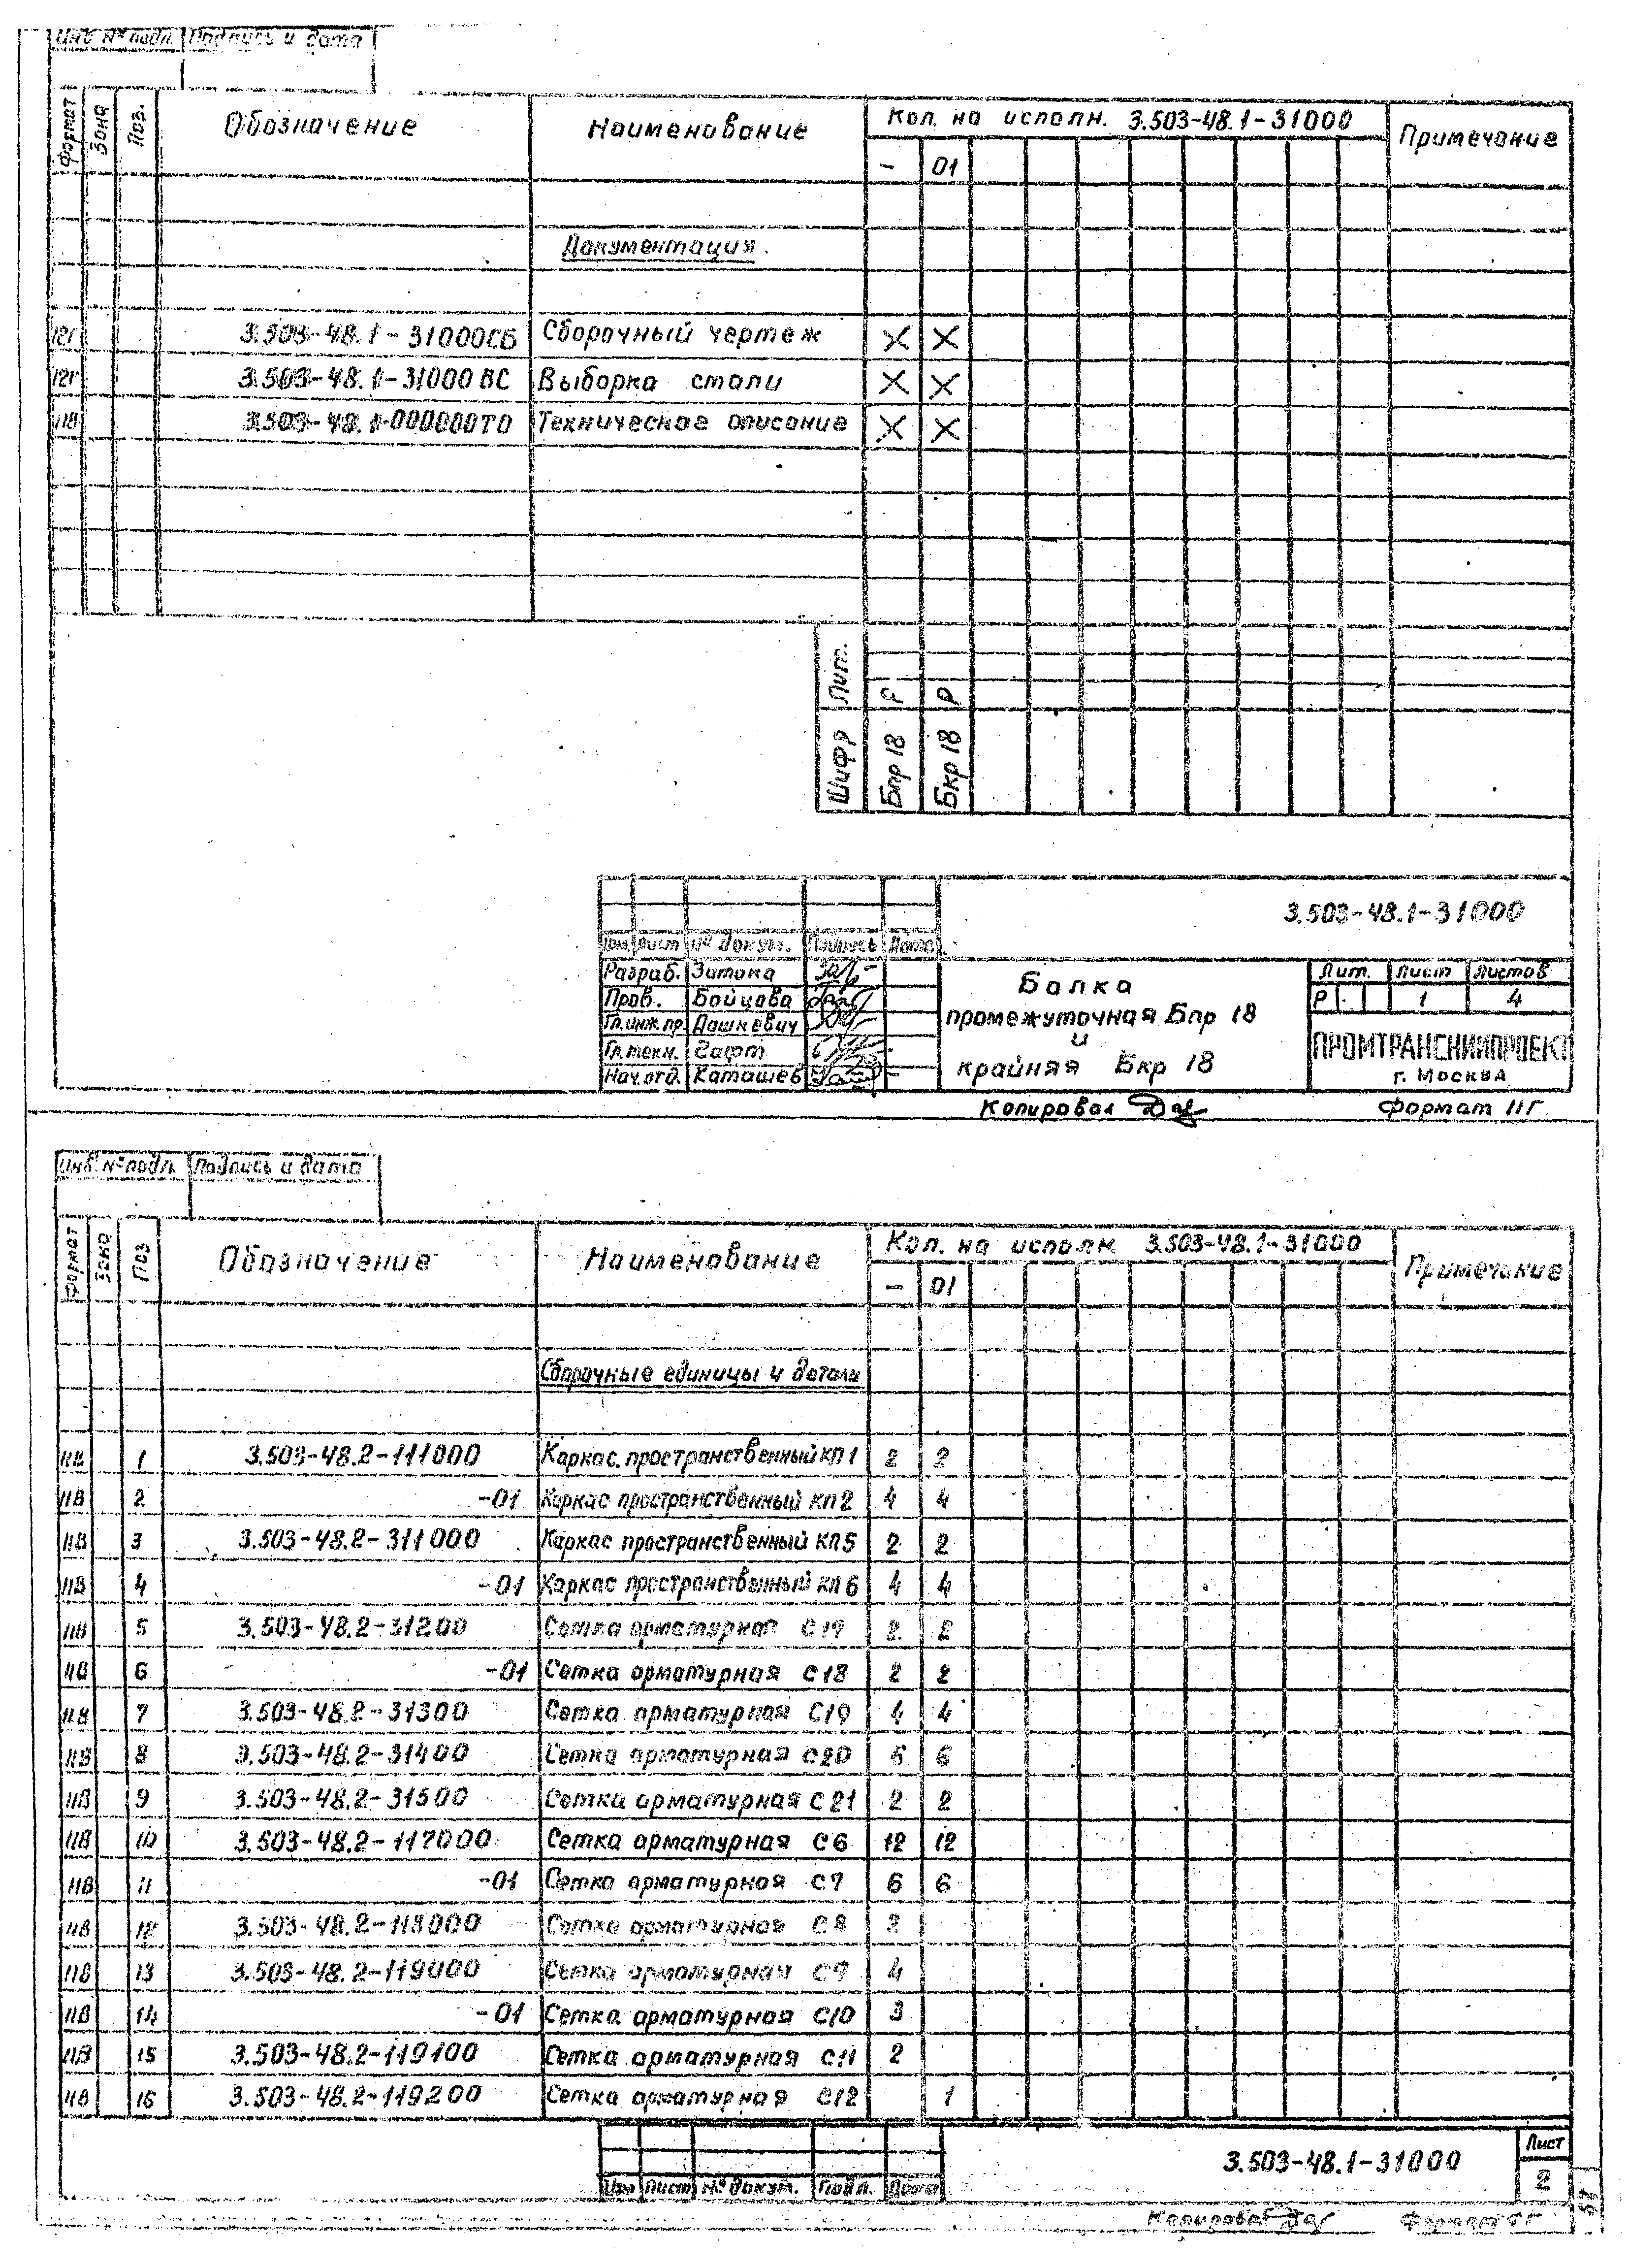 Инв. № подл. Подпись и дата
Формат Зона Поз. Обозначение Наименование Кол. на исполн. 3.503-48.1-31000 Примечание
- 01
Документация.
12Г 3.503-48.1-31000СБ Сборочный чертеж X X
12Г 3.503-48.1-31000ВС Выборка стали X X
11В 3.503-48.1-000000ТО Техническое описание X X
Шифр Лит.
Бпр 18 Р
Бкр 18 Р
3.503-48.1-31000
Изм. Лист № докум. Подпись Дата
Разраб. Затока
Пров. Бойцова
Гл.инж.пр. Дашкевич
Гл.техн. Гафт
Нач.отд. Каташев
Балка
промежуточная Бпр 18
и
крайняя Бкр 18
Лит. Лист Листов
Р 1 4
ПРОМТРАНСНИИПРОЕКТ
г. Москва
Копировал Формат 11Г
Инв. № подл. Подпись и дата
Формат Зона Поз Обозначение Наименование Кол. на исполн. 3.503-48.1-31000 Примечание
- 01
Сборочные единицы и детали
11В 1 3.503-48.2-111000 Каркас пространственный КП1 2 2
11В 2 -01 Каркас пространственный КП2 4 4
11В 3 3.503-48.2-311000 Каркас пространственный КП5 2 2
11В 4 -01 Каркас пространственный КП6 4 4
11В 5 3.503-48.2-31200 Сетка арматурная 2 2
11В 6 -01 Сетка арматурная С18 2 2
11В 7 3.503-48.2-31300 Сетка арматурная С19 4 4
11В 8 3.503-48.2-31400 Сетка арматурная С20 6 6
11В 9 3.503-48.2-31500 Сетка арматурная С21 2 2
11В 10 3.503-48.2-117000 Сетка арматурная С6 12 12
11В 11 -01 Сетка арматурная С7 6 6
11В 12 3.503-48.2-118000 Сетка арматурная С8
11В 13 3.503-48.2-119000 Сетка арматурная С9 4
11В 14 -01 Сетка арматурная С10 3
11В 15 3.503-48.2-119100 Сетка арматурная С11 2
11В 16 3.503-48.2-119200 Сетка арматурная С12 1
Изм Лист № докум. Подп. Дата
3.503-48.1-31000
Лист
2
Копировал Формат 11Г